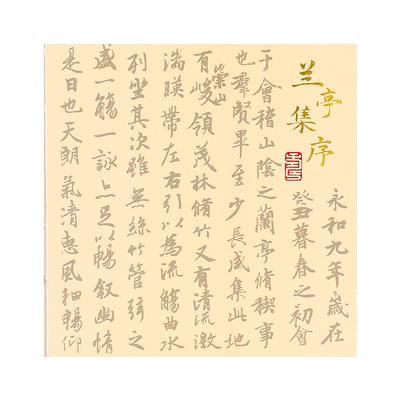 兰亭集序
永和九年歲在
癸丑暮春之初會
于會稽山陰之蘭亭脩稧事
也羣賢畢至少長咸集此地
有崇山峻領茂林脩竹又有清流激
湍暎帶左右引以為流觴曲水
列坐其次雖無絲竹管弦之
盛一觴一詠亦足以暢敘幽情
是日也天朗氣清惠風和暢仰